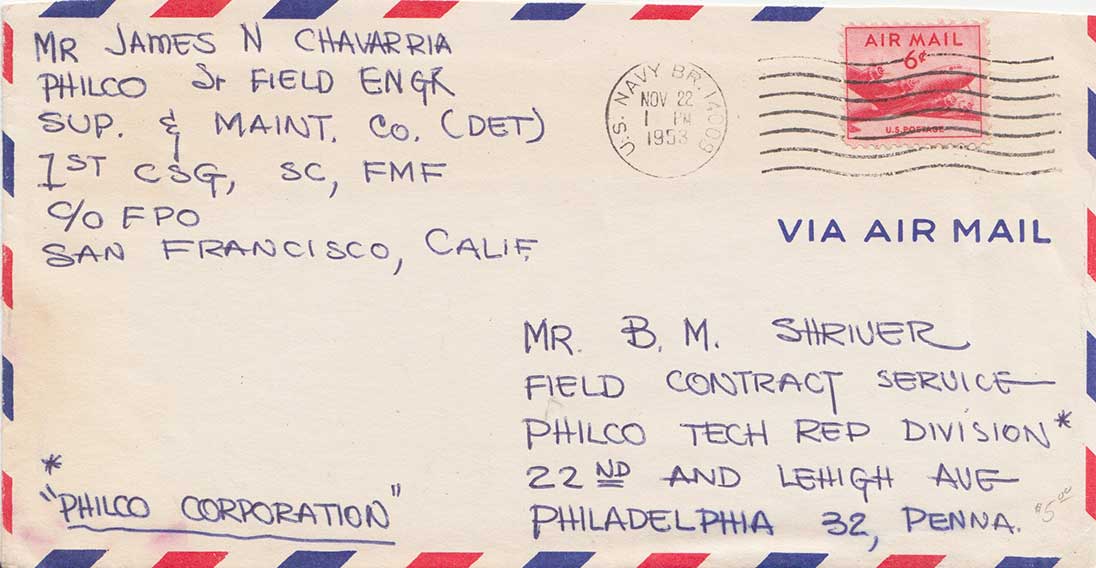 MR JAMES N CHAVARRIA
PHILCO Sr FIELD ENGR
SUP. & MAINT. Co. (DET)
1ST CSG, SC, FMF
c/o FPO
SAN FRANCISCO, CALIF.
U.S. NAVY BR. 14009
NOV 22
1 PM
1953
AIR MAIL
6¢
U.S. POSTAGE
VIA AIR MAIL
MR. B. M. SHRIVER
FIELD CONTRACT SERVICE
PHILCO TECH REP DIVISION *
22ND AND LEHIGH AVE
PHILADELPHIA 32, PENNA.
$5.00
*
"PHILCO CORPORATION"